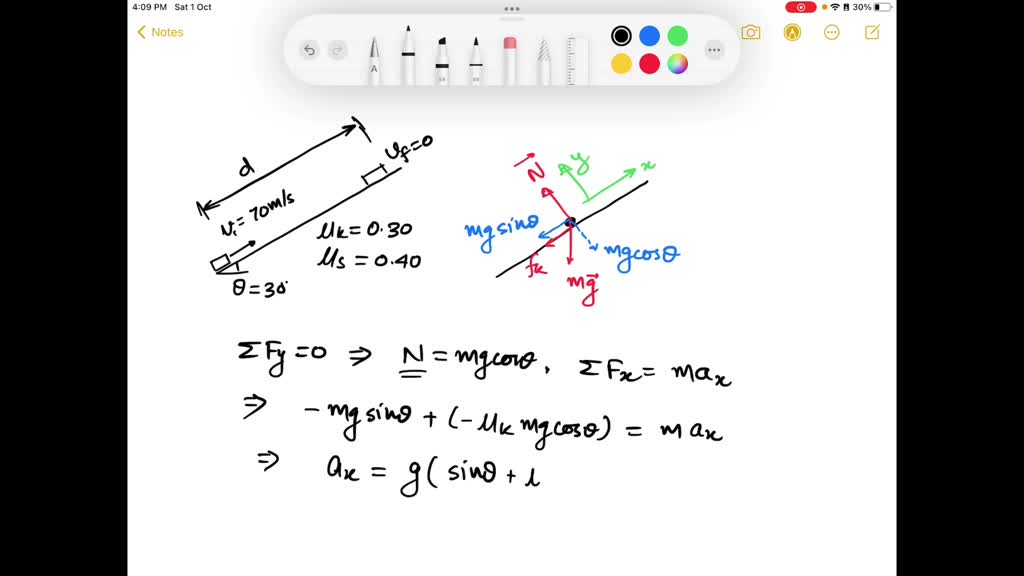 4:09 PM Sat 1 Oct
30%
Notes
d
v_f=0
v_i = 70m/s
μ_k = 0.30
μ_s = 0.40
θ = 30°
N⃗
y
x
mg sinθ
f_k
mg⃗
mg cosθ
ΣF_y = 0 ⇒ N = mg cosθ, ΣF_x = ma_x
⇒ - mg sinθ + (-μ_k mg cosθ) = m a_x
⇒ a_x = g( sinθ + ι